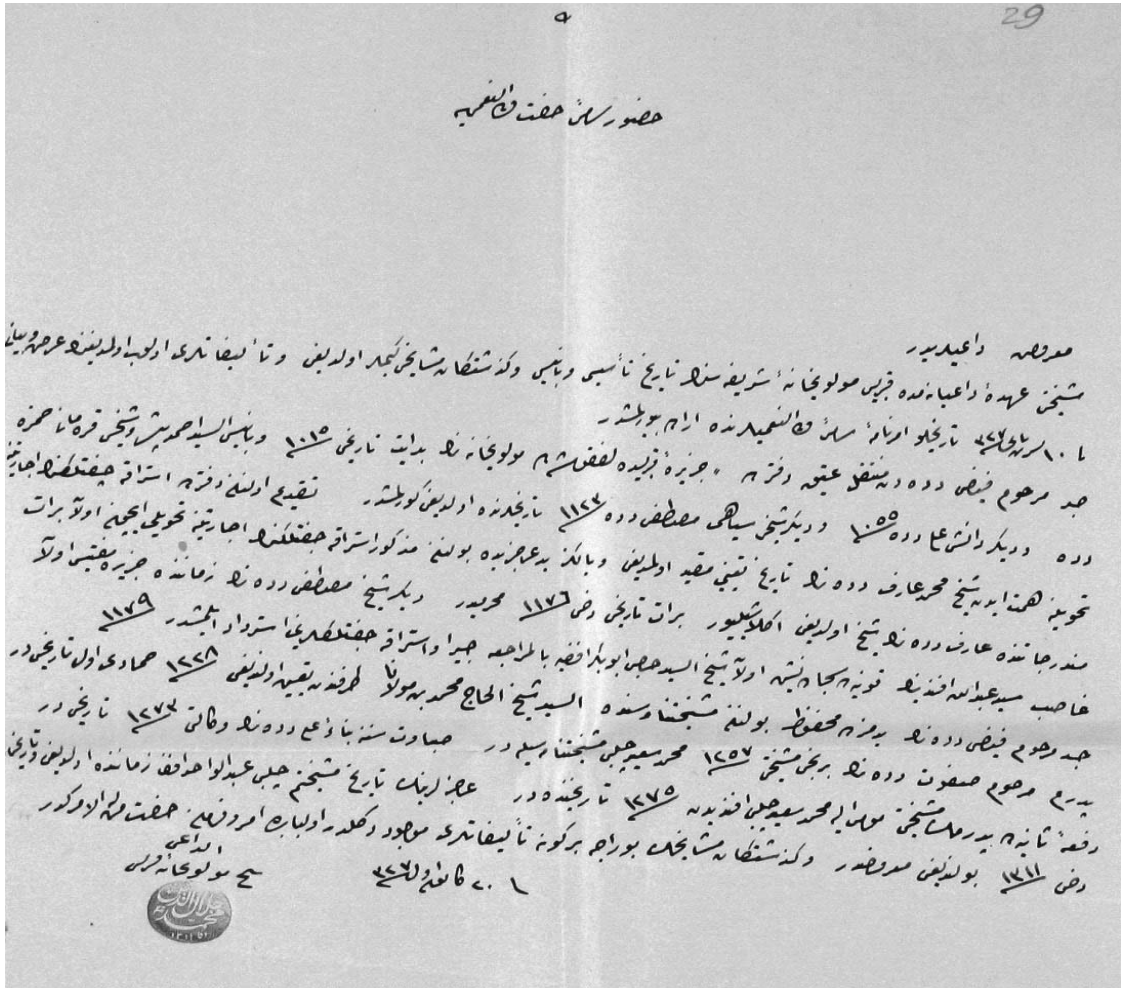 29
حضور سامئ حضرت ولى النعمى يه
معروض داعيلريدر
مشيختى عهدۀ داعيانه مده قبريس مولويخانۀ شريفه سنك تاريخ تأسيسى وبانيسى وكذشتكان مشايخى كيملر اولديغى و تأليفاتلرى اولوب اولمديغنك عرض وبيانى
تاريخلو امرنامۀ سامئ ولى النعميلرنده اراده بيورلمشدر
جد مرحوم فيضى دده دن منتقل عتيق دفترده جزيرۀ قبريسده لفقوشه ده مولويخانه نك بدايت تاريخى ١٠١٥ وبانيسى السيد احمد پاشا وشيخى قره مانى حمزه
دده وديكر دانش على دده ١٠٥٥ وديكر شيخى سياهى مصطفى دده ١١٢٣ تاريخلرنده اولديغى كورلمشدر تقديم اولنان دفترده استراقه چفتلكنك اجارتينه
تحويلنه همت ايدن شيخ محمد عارف دده نك تاريخ تعيينى مقيد اولمديغى ويالكز يد عاجزيده بولنان مذكور استراقه چفتلكنك اجارتينه تحويلى ايچون اولان برات
مندرجاتنده عارف دده نك شيخ اولديغى اكلاشيليور برات تاريخى دخى ١١٧٦ محرمدر ديكر شيخ مصطفى دده نك زماننده جزيره مفتيسى اولان
غاصب سيد عبدالله افندينك قونيه ده اولان شيخ السيد الحاج ابوبكر افندى يه بالمراجعه جبرا واستراقه چفتلكلرينى استرداد ايلمشدر ١١٧٩
جد مرحوم فيضى دده نك يدمزده محفوظ بولنان مشيختنامه سنده السيد الشيخ الحاج محمد بن مولانا طرفندن تعيين اولنديغى ١٢٢٨ جمادى الاول تاريخى در
پدرم مرحوم صفوت دده نك برنجى مشيختى ١٢٥٧ محمد سعيد چلبى مشيختنامه سيله در صفاوت سننه بناء على دده نك وكالتى ١٢٧٣ تاريخى در
دفعۀ ثانيه ده پدرمك مشيختى مومى اليه محمد سعيد چلبى افنديدن ١٢٧٥ تاريخنده در عاجزلرينك تاريخ مشيختم چلبى عبدالواحد افندى زماننده اولديغى وتاريخى
دخى ١٣١١ بولنديغى معروضدر وكذشتكان مشايخك بوراجه بركونه تأليفاتلرى موجود دكلدر اولبابده امر وفرمان حضرت من له الامركدر
٢٠ كانون اول ٣٢٧
الداعى
شيخ مولويخانۀ قبريس
محمد جلال الدين